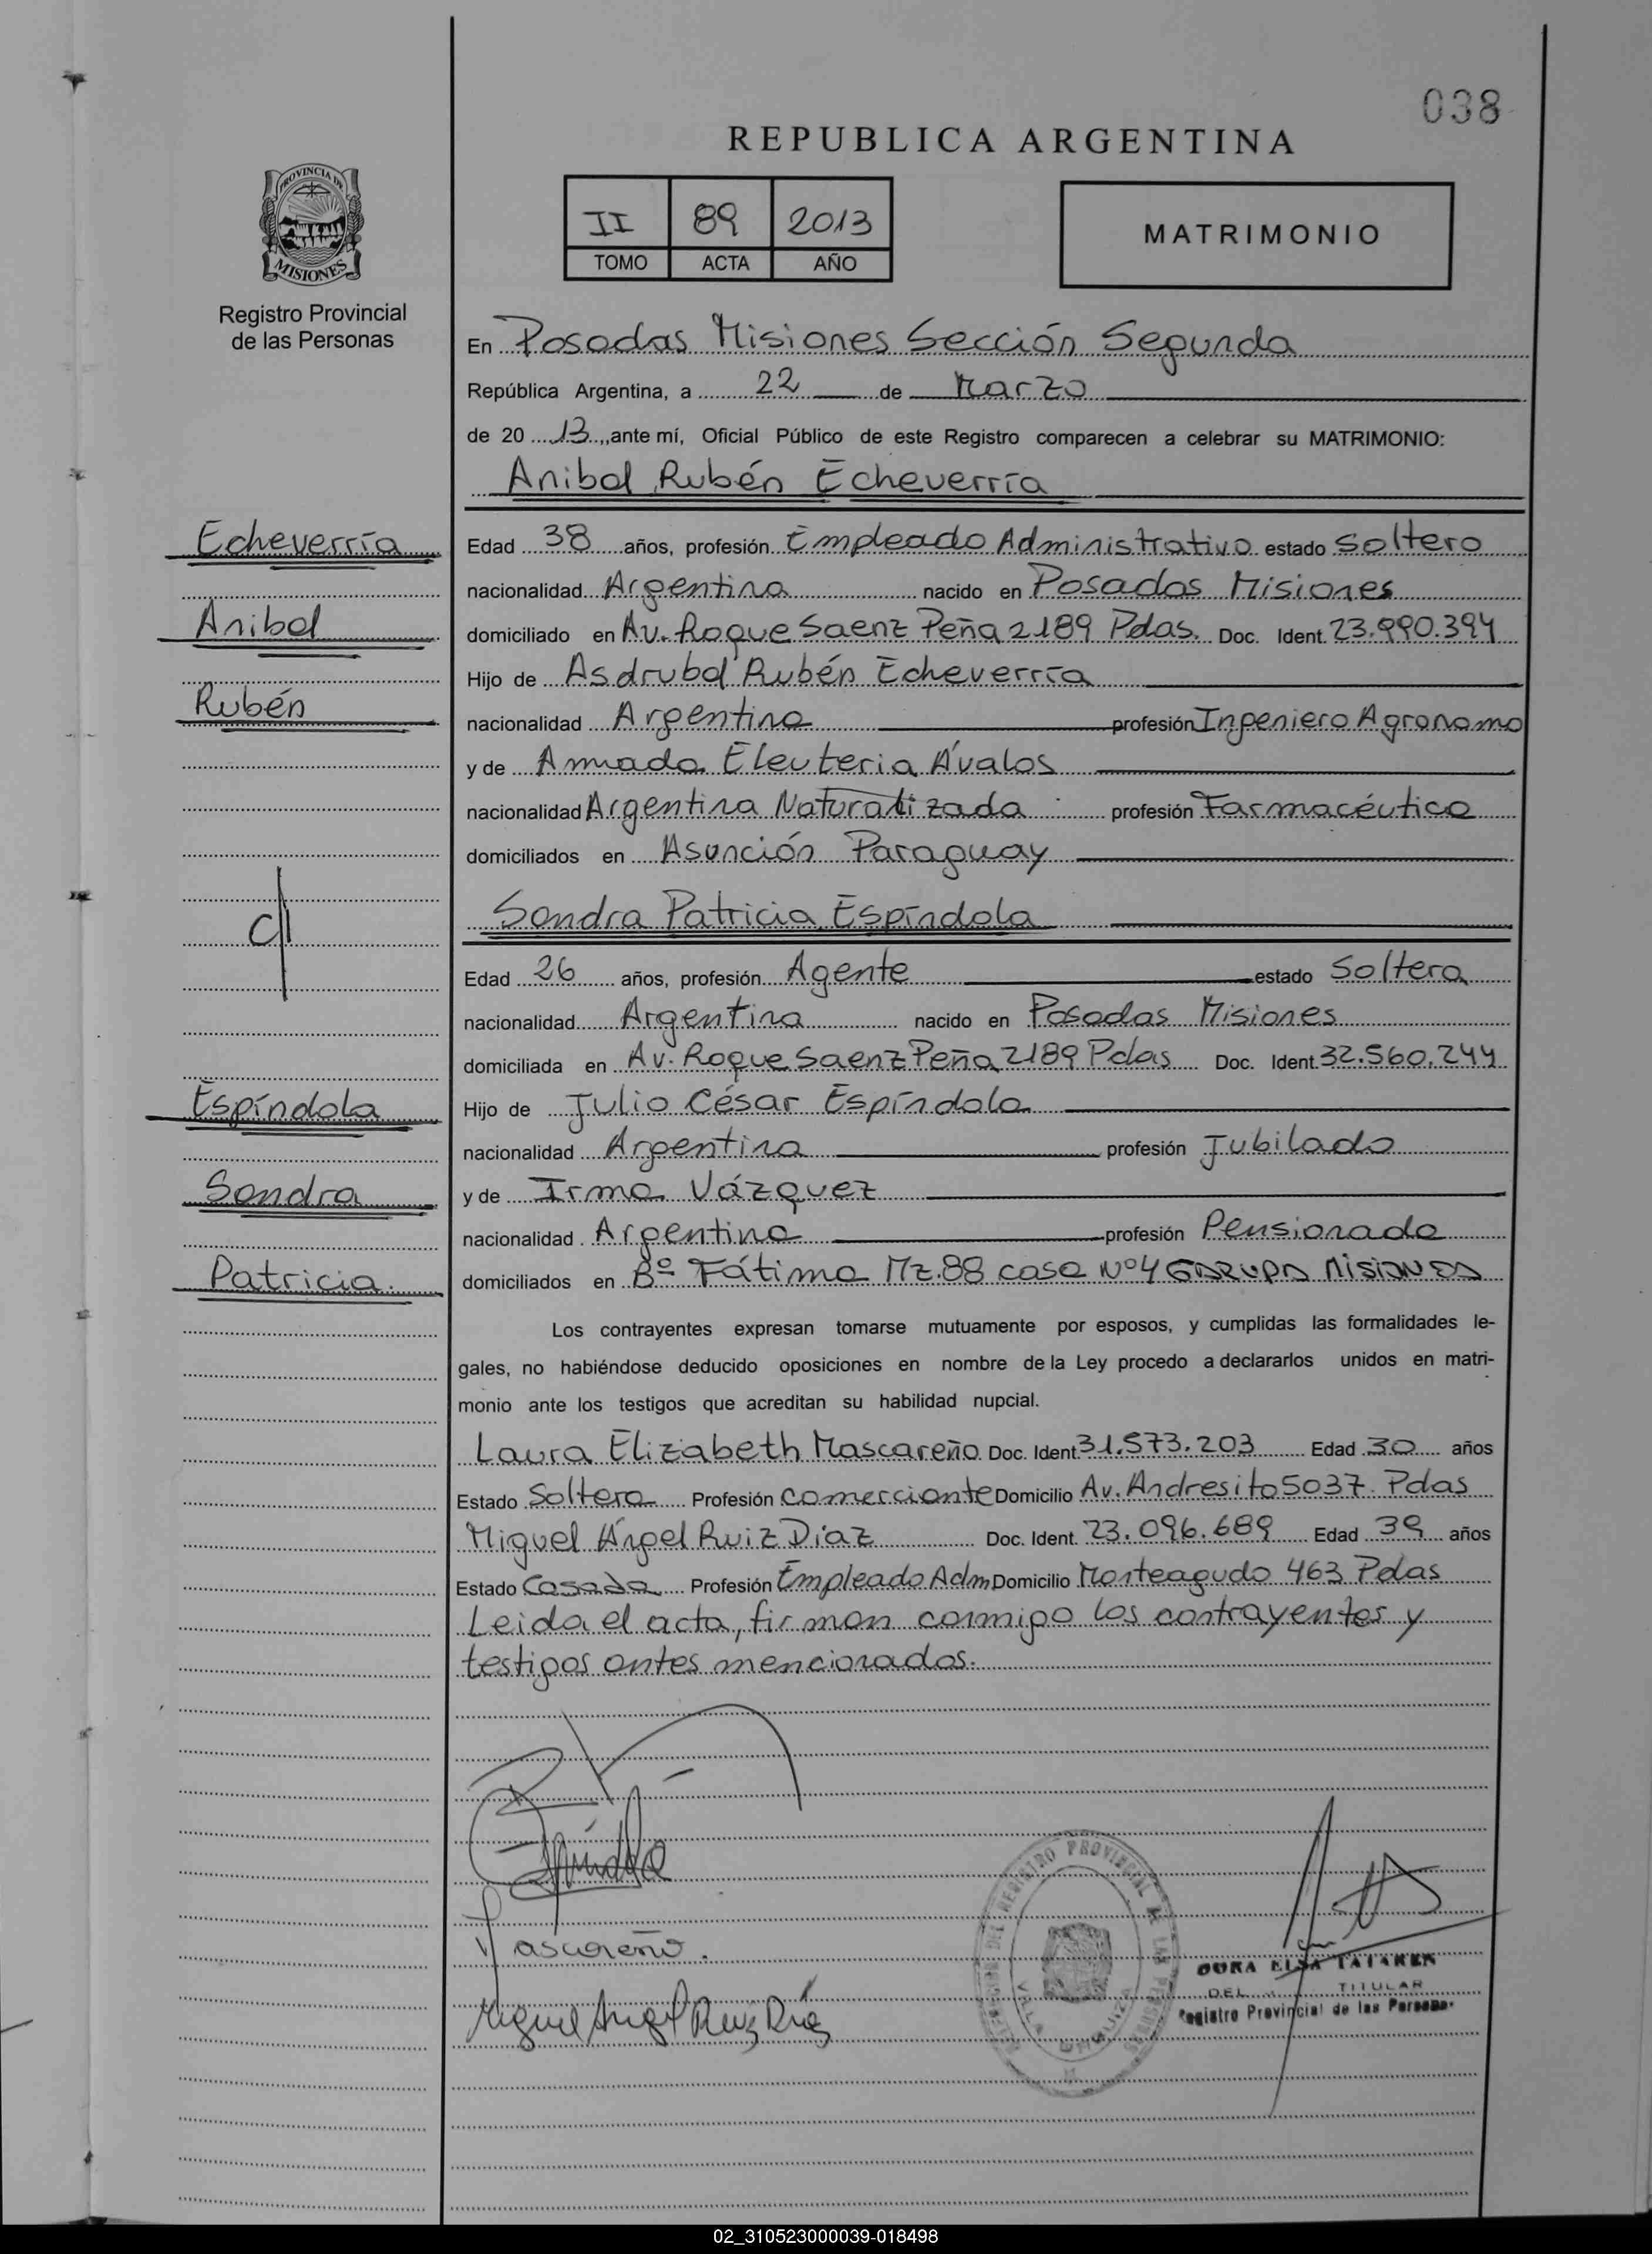 038
REPUBLICA ARGENTINA
PROVINCIA DE
MISIONES
Registro Provincial
de las Personas
II 89 2013
TOMO ACTA AÑO
MATRIMONIO
En Posadas Misiones Sección Segunda
República Argentina, a 22 de Marzo
de 2013, ante mí, Oficial Público de este Registro comparecen a celebrar su MATRIMONIO:
Anibal Rubén Echeverría
Echeverría
Anibal
Rubén
Edad 38 años, profesión Empleado Administrativo estado Soltero
nacionalidad Argentina nacido en Posadas Misiones
domiciliado en Av. Roque Saenz Peña 2189 Pdas. Doc. Ident. 23.990.394
Hijo de Asdrubal Rubén Echeverría
nacionalidad Argentina profesión Ingeniero Agronomo
y de Amada Eleuteria Ávalos
nacionalidad Argentina Naturalizada profesión Farmacéutica
domiciliados en Asunción Paraguay
c/
Sandra Patricia Espíndola
Edad 26 años, profesión Agente estado Soltera
nacionalidad Argentina nacido en Posadas Misiones
domiciliada en Av. Roque Saenz Peña 2189 Pdas Doc. Ident. 32.560.244
Espíndola
Sandra
Patricia.
Hijo de Julio César Espíndola
nacionalidad Argentina profesión Jubilado
y de Irma Vázquez
nacionalidad Argentina profesión Pensionada
domiciliados en Bº Fátima Mz.88 casa Nº4 GARUPA MISIONES
Los contrayentes expresan tomarse mutuamente por esposos, y cumplidas las formalidades le-
gales, no habiéndose deducido oposiciones en nombre de la Ley procedo a declararlos unidos en matri-
monio ante los testigos que acreditan su habilidad nupcial.
Laura Elizabeth Mascareño Doc. Ident. 31.573.203 Edad 30 años
Estado Soltera Profesión comerciante Domicilio Av. Andresito 5037 Pdas
Miguel Ángel Ruiz Díaz Doc. Ident. 23.096.689 Edad 39 años
Estado Casado Profesión Empleado Adm Domicilio Monteagudo 463 Pdas
Leida el acta, firman conmigo los contrayentes y
testigos antes mencionados.
Espíndola
Mascareño.
Miguel Angel Ruiz Díaz
DEL REGISTRO PROVINCIAL DE LAS PERSONAS
VILLA URQUIZA
ELSA
TITULAR
DEL
Registro Provincial de las Personas
02_310523000039-018498